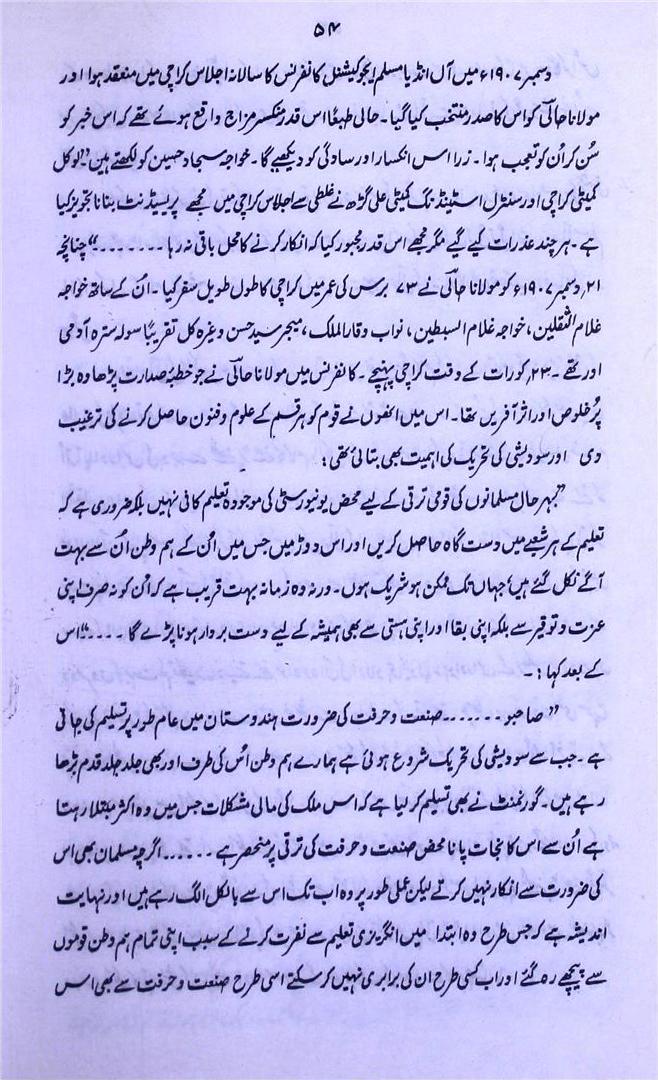 ۵۴
دسمبر ۱۹۰۷ء میں آل انڈیا مسلم ایجوکیشنل کانفرنس کا سالانہ اجلاس کراچی میں منعقد ہوا اور
مولانا حالیؔ کو اس کا صدر منتخب کیا گیا۔ حالی طبعًا اس قدر منکسر مزاج واقع ہوئے تھے کہ اس خبر کو
سُن کر اُن کو تعجب ہوا۔ زرا اس انکسار اور سادگی کو دیکھیے گا۔ خواجہ سجاد حسین کو لکھتے ہیں ”لوکل
کمیٹی کراچی اور سنٹرل اسٹینڈنگ کمیٹی علی گڑھ نے غلطی سے اجلاس کراچی میں مجھے پریسیڈنٹ بنانا تجویز کیا
ہے۔ ہر چند عذرات کیے گیے مگر مجھے اس قدر مجبور کیا کہ انکار کرنے کا محل باقی نہ رہا .......“ چنانچہ
۲۱؍ دسمبر ۱۹۰۷ء کو مولانا حالیؔ نے ۷۳ برس کی عمر میں کراچی کا طول طویل سفر کیا۔ اُن کے ساتھ خواجہ
غلام الثقلین، خواجہ غلام السبطین، نواب وقار الملک، میجر سید حسن وغیرہ کل تقریبًا سولہ سترہ آدمی
اور تھے۔ ۲۳؍ کو رات کے وقت کراچی پہنچے۔ کانفرنس میں مولانا حالیؔ نے جو خطبۂ صدارت پڑھا وہ بڑا
پُر خلوص اور اثر آفریں تھا۔ اس میں انھوں نے قوم کو ہر قسم کے علوم و فنون حاصل کرنے کی ترغیب
دی اور سودیشی کی تحریک کی اہمیت بھی بتائی تھی:
”بہرحال مسلمانوں کی قومی ترقی کے لیے محض یونیورسٹی کی موجودہ تعلیم کافی نہیں بلکہ ضروری ہے کہ
تعلیم کے ہر شعبے میں دست گاہ حاصل کریں اور اس دوڑ میں جس میں اُن کے ہم وطن اُن سے بہت
آگے نکل گئے ہیں، جہاں تک ممکن ہو شریک ہوں۔ ورنہ وہ زمانہ بہت قریب ہے کہ اُن کو نہ صرف اپنی
عزت و توقیر سے بلکہ اپنی بقا اور اپنی ہستی سے بھی ہمیشہ کے لیے دست بردار ہونا پڑے گا ....“ اس
کے بعد کہا:۔
”صاحبو ....... صنعت و حرفت کی ضرورت ہندوستان میں عام طور پر تسلیم کی جاتی
ہے۔ جب سے سودیشی کی تحریک شروع ہوئی ہے ہمارے ہم وطن اُس کی طرف اور بھی جلد جلد قدم بڑھا
رہے ہیں۔ گورنمنٹ نے بھی تسلیم کر لیا ہے کہ اس ملک کی مالی مشکلات جس میں وہ اکثر مبتلا رہتا
ہے اُن سے اس کا نجات پانا محض صنعت و حرفت کی ترقی پر منحصر ہے ...... اگرچہ مسلمان بھی اس
کی ضرورت سے انکار نہیں کرتے لیکن عملی طور پر وہ اب تک اس سے بالکل الگ رہے ہیں اور نہایت
اندیشہ ہے کہ جس طرح وہ ابتدا میں انگریزی تعلیم سے نفرت کرنے کے سبب اپنی تمام ہم وطن قوموں
سے پیچھے رہ گئے اور اب کسی طرح ان کی برابری نہیں کر سکتے اسی طرح صنعت و حرفت سے بھی اس